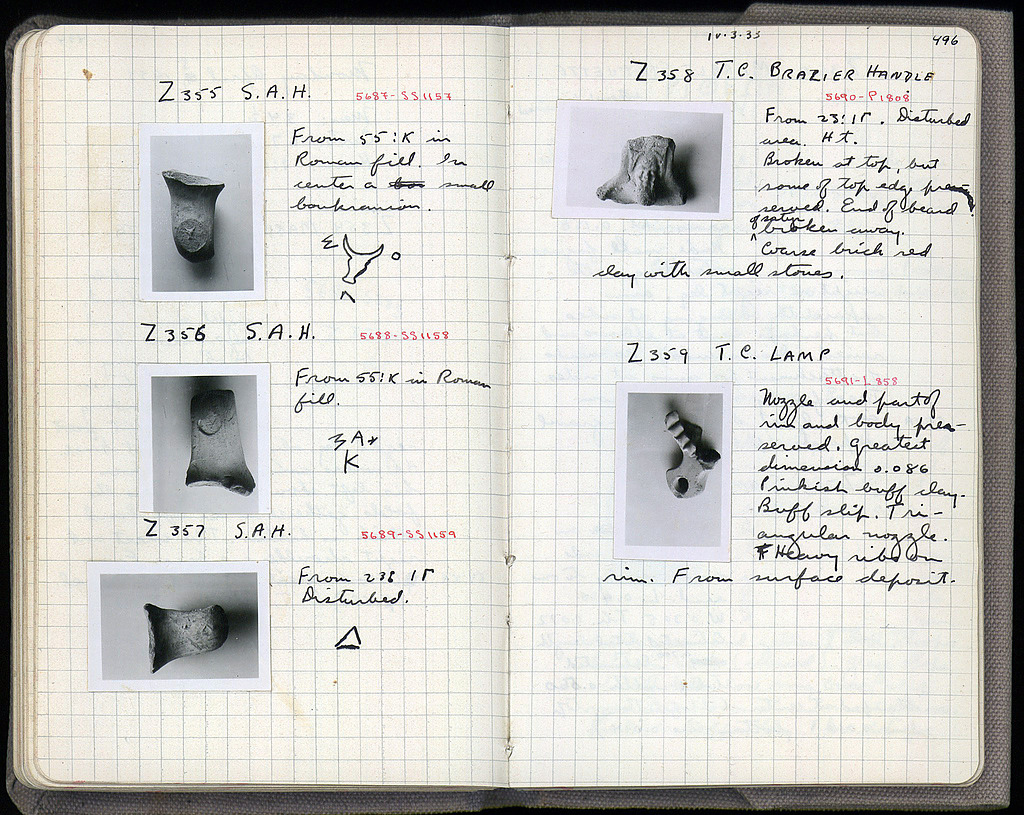 Z 355 S.A.H. 5687-SS1157
From 55:K in
Roman fill. In
center a small
boukranion.
Σ Ο
Λ
Z 356 S.A.H. 5688-SS1158
From 55:K in Roman
fill.
A
K
Z 357 S.A.H. 5689-SS1159
Disturbed.
Δ
IV·3·33
496
Z 358 T.C. BRAZIER HANDLE
5690-P1808
From 23:ΙΓ. Disturbed
area. Ht.
Broken at top, but
some of top edge pre-
served. End of beard
of satyr
broken away.
Coarse brick red
clay with small stones.
Z 359 T.C. LAMP
5691-L858
Nozzle and part of
rim and body pre-
served. Greatest
dimension 0.086
Pinkish buff clay.
Buff slip. Tri-
angular nozzle.
Heavy ribs on
rim. From surface deposit.